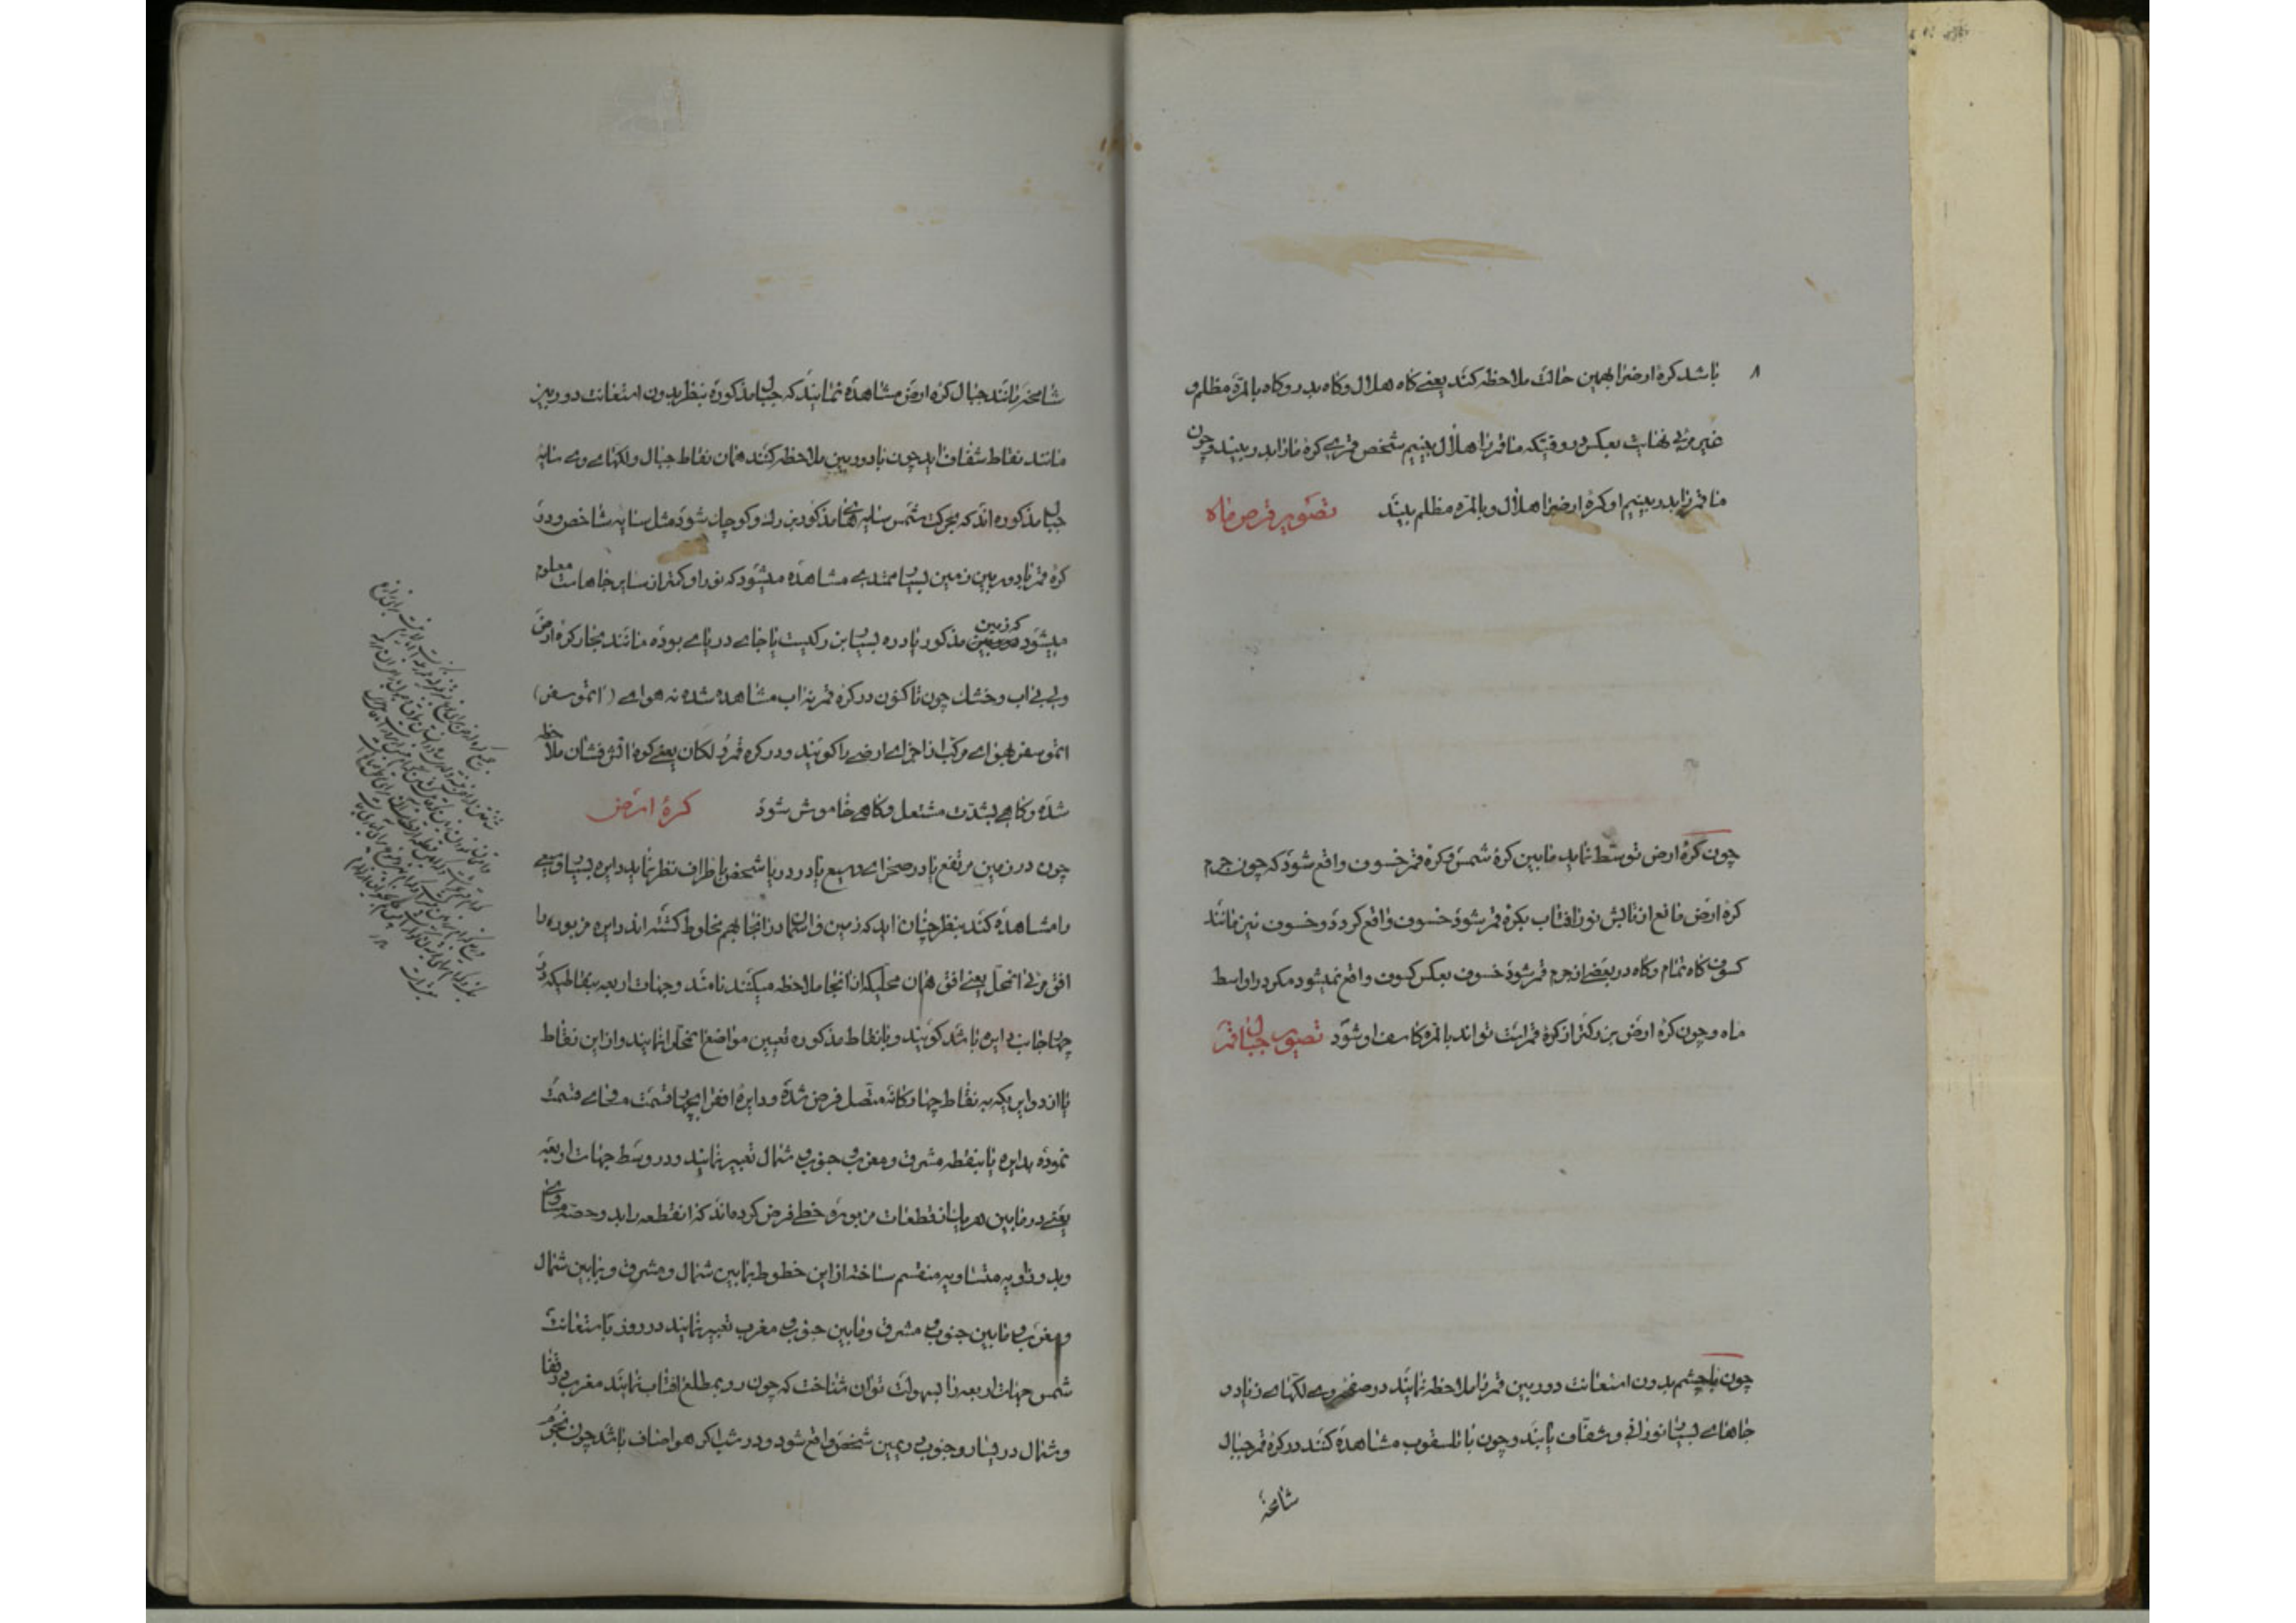 ۸
باشد کرهٔ ارض را بهمین حالت ملاحظه کند یعنی کاه هلال و کاه بدر و کاه بالمرّه مظلم و
غیر مرئی نهایت بعکس در وقتیکه ما قمر را هلال بینیم شخص قمری کرهٔ ما را بدر بیند و چون
ما قمر را بدر بینیم او کرهٔ ارض را هلال و بالمره مظلم بیند تصویر قرص ماه
چون کرهٔ ارض توسّط نماید مابین کرهٔ شمس و کرهٔ قمر خسوف واقع شود که چون جرم
کرهٔ ارض مانع از تابش نور افتاب بکرهٔ قمر شود خسوف واقع کردد و خسوف نیز مانند
کسوف کاه تمام و کاه در بعضی از جرم قمر شود خسوف بعکس کسوف واقع نمیشود مکر در اواسط
ماه و چون کرهٔ ارض بزرکتر از کرهٔ قمر است تواند بالمره کاسف او شود تصویر جبال قمر
چون با چشم بدون استعانت دوربین قمر را ملاحظه نمایند در صفحه وی لکهای زیاد و
جاهای بسیار نورانی و شفاف یابند و چون با تلسقوب مشاهده کنند در کرهٔ قمر جبال
شامخهٔ
شامخه مانند جبال کرهٔ ارض مشاهده نمایند که جبال مذکوره بنظر بدون استعانت دوربین
مانند نقاط شفاف اید چون با دوربین ملاحظه کنند همان نقاط جبال و لکهای وی سایهٔ
جبال مذکوره اند که بحرکت شمس سایه های مذکور بزرک و کوچک شود مثل سایه شاخص و در
کرهٔ قمر با دوربین زمین بسیار ممتدی مشاهده میشود که نور او کمتر از سایر جاهاست معلوم
میشود که زمین مذکور یا دره بسیار بزرکیست یا جای دریای بوده مانند بحار کرهٔ ارض
ولی بی اب و خشک چون تاکنون در کرهٔ قمر نه اب مشاهده شده نه هوای (اتموسفر)
اتموسفر هوای مرکب از اجزای ارضی را کویند و در کره قمر ولکان یعنی کوه اتش فشان ملاحظه
شده و کاهی بشدّت مشتعل و کاهی خاموش شود کرهٔ ارض
چون در زمین مرتفع یا در صحرای وسیع یا در دریا شخص باطراف نظر نماید دایره بسیار وسیعی
را مشاهده کند بنظر چنان اید که زمین و اسمان در انجا بهم مخلوط کشته اند دایره مزبوره را
افق مرئی انمحل یعنی افق همان محلیکه از انجا ملاحظه میکنند نامند و جهات اربعه بنقاطیکه در
چهار جانب دایره باشد کویند و با نقاط مذکوره تعیین مواضع انمحل را نمایند و از این نقاط
با ان دوایریکه به نقاط چهارکانه متصل فرض شده و دایرهٔ افق را بچهار قسمت مساوی قسمت
نموده بدایره یا بنقطه مشرق و مغرب و جنوب و شمال تعبیر نمایند و در وسط جهات اربعه
یعنی در مابین هر یک از قطعات مزبوره خطی فرض کرده اند که انقطعه را بدو حصّه مساوی
و بدو زاویه متساویه منقسم ساخته از این خطوط بمابین شمال و مشرق و بمابین شمال
و مغرب و مابین جنوب و مشرق و مابین جنوب و مغرب تعبیر نمایند در روز باستعانت
شمس جهات اربعه را بسهولت توان شناخت که چون رو بمطلع افتاب نمایند مغرب در قفا
و شمال در یسار و جنوب در یمین شخص واقع شود و در شب اکر هوا صاف باشد چون نجوم